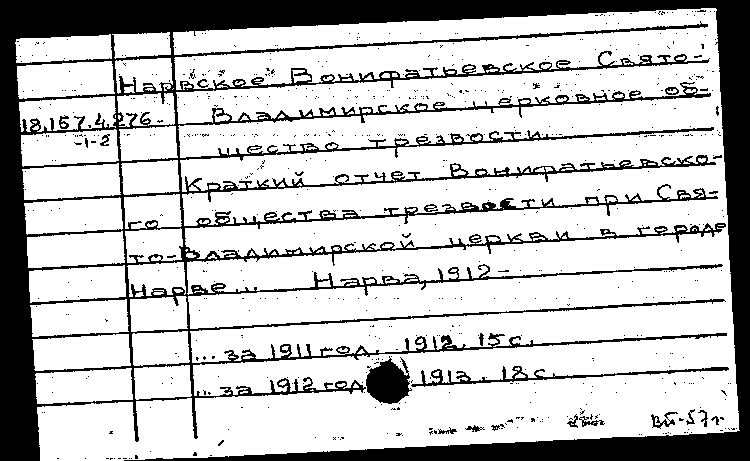 Нарвское Вонифатьевское Свято-
18.157.4.276- Владимирское церковное об-
-1-2
щество трезвости.
Краткий отчет Вонифатьевско-
го общества трезвости при Свя-
то-Владимирской церкви в городе
Нарве... Нарва, 1912-
...за 1911 год. 1912. 15 с.
...за 1912 год 1913. 18 с.